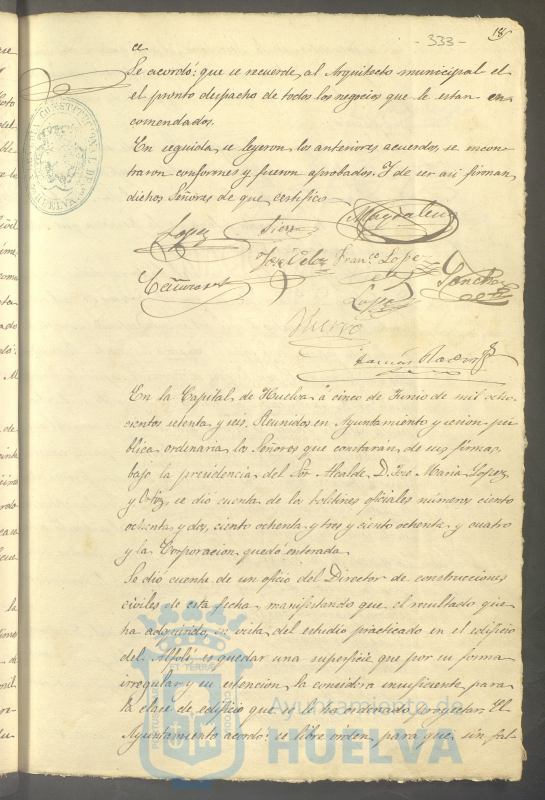 - 333 -
18
ce
Se acordó: que se recuerde al Arquitecto municipal el
el pronto despacho de todos los negocios que le estan en
comendados.
En seguida se leyeron los anteriores acuerdos, se encon
traron conformes y fueron aprobados. Y de ser asi firman
dichos Señores de que certifico
Lopez Sierra Magdalena
José Franco. Lopez Sanchez
Lopez
En la Capital de Huelva á cinco de Junio de mil ocho
cientos setenta y seis. Reunidos en Ayuntamiento y sesion pú
blica ordinaria los Señores que constarán de sus firmas,
bajo la presidencia del Sor Alcalde D. José Maria Lopez
y Ortiz, se dió cuenta de los boletines oficiales números ciento
ochenta y dos, ciento ochenta y tres y ciento ochenta y cuatro
y la Corporacion quedó enterada.
Se dió cuenta de un oficio del Director de construcciones
civiles de esta fecha manifestando que el resultado que
ha adquirido, en vista del estudio practicado en el edificio
del Alfolí es quedar una superficie que por su forma
irregular y su estencion la considera insuficiente para
la clase de edificio que se le ha ordenado proyectar. El
Ayuntamiento acordó: se libre órden para que sin fal-
Ayuntamiento de
HUELVA